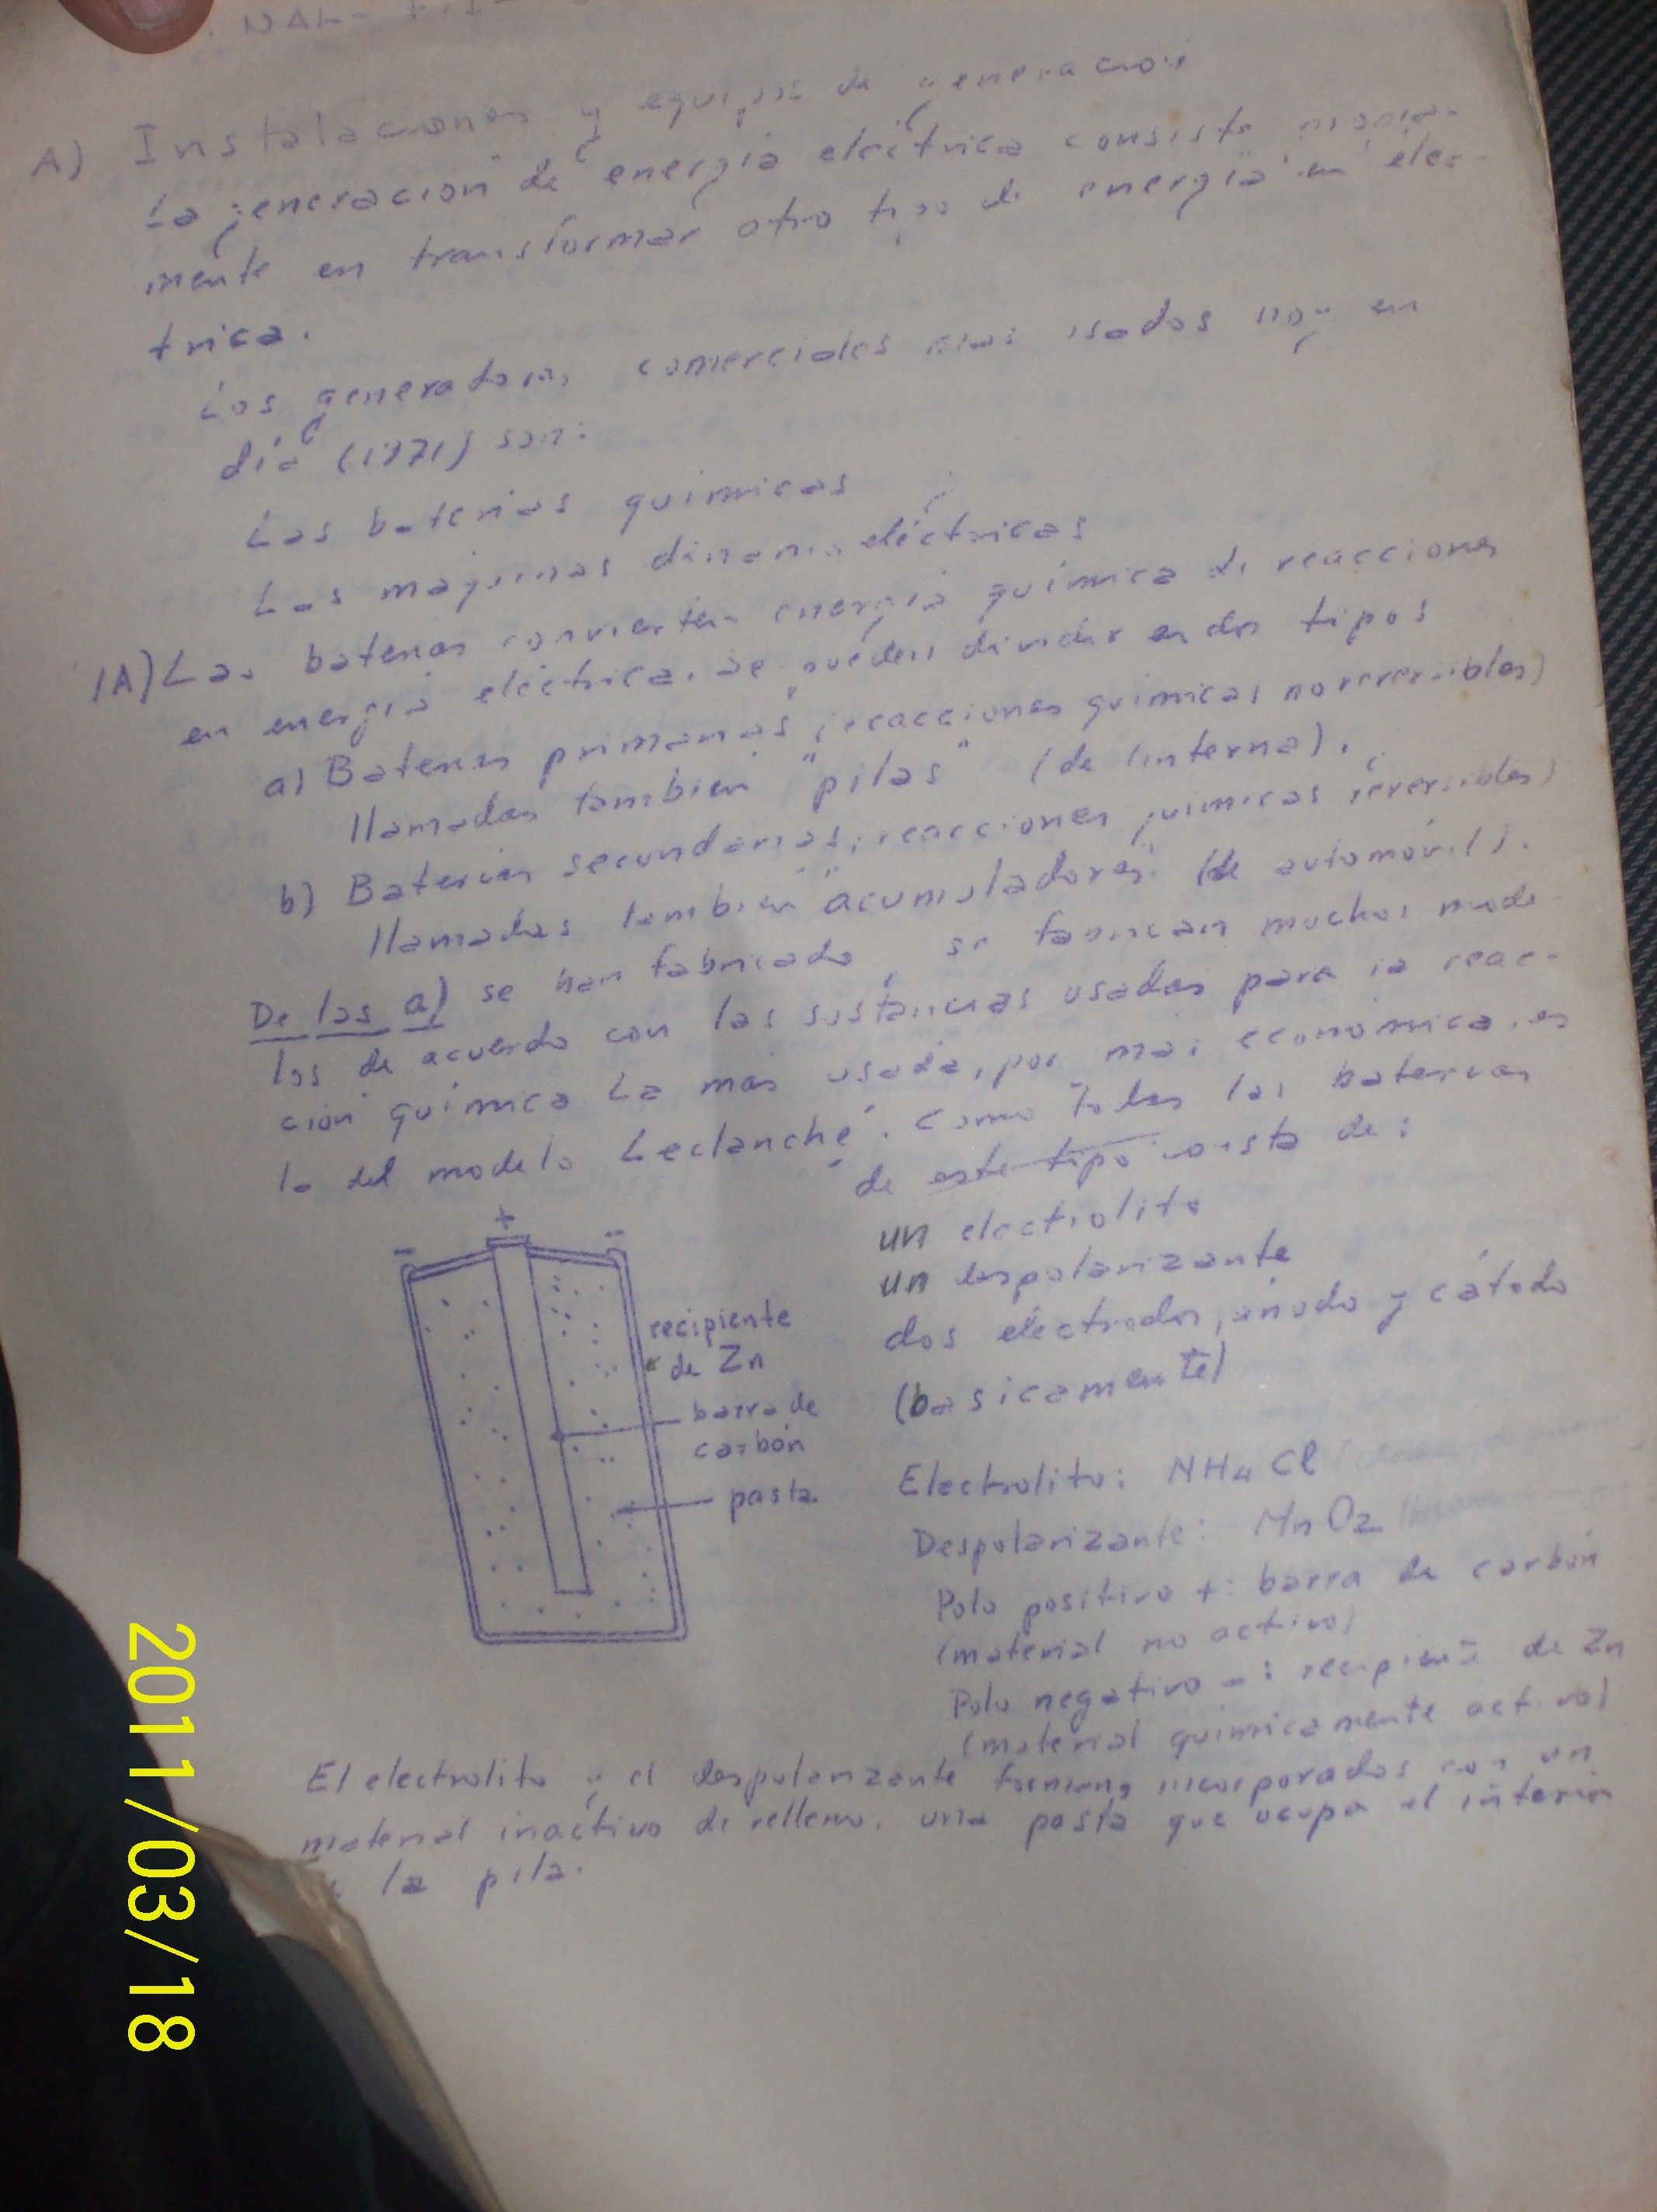 A) Instalaciones y equipos de generación
La generación de energía eléctrica consiste
mente en transformar otro tipo de energía en eléc-
trica.
Los generadores comerciales más usados hoy en
día (1971) son:
Las baterías químicas
Las máquinas dinamoeléctricas
1A) Las baterías convierten energía química de reacciones
en energía eléctrica. Se pueden dividir en dos tipos
a) Baterías primarias (reacciones químicas no reversibles)
llamadas también "pilas" (de linterna).
b) Baterías secundarias (reacciones químicas reversibles)
llamadas también "acumuladores" (de automóvil).
De las a) se han fabricado, se fabrican muchos mode-
los de acuerdo con las sustancias usadas para la reac-
ción química. La más usada, por más económica, es
la del modelo Leclanché. Como todas las baterías
de este tipo consta de:
un electrolito
un despolarizante
dos electrodos, ánodo y cátodo
(basicamente)
+
- -
recipiente
de Zn
barra de
carbón
pasta
Electrolito: NH4Cl
Despolarizante: MnO2
Polo positivo +: barra de carbón
(material no activo)
Polo negativo -: recipiente de Zn
(material quimicamente activo)
El electrolito y el despolarizante forman, incorporados con un
material inactivo de relleno, una pasta que ocupa el interior
la pila.
2011/03/18